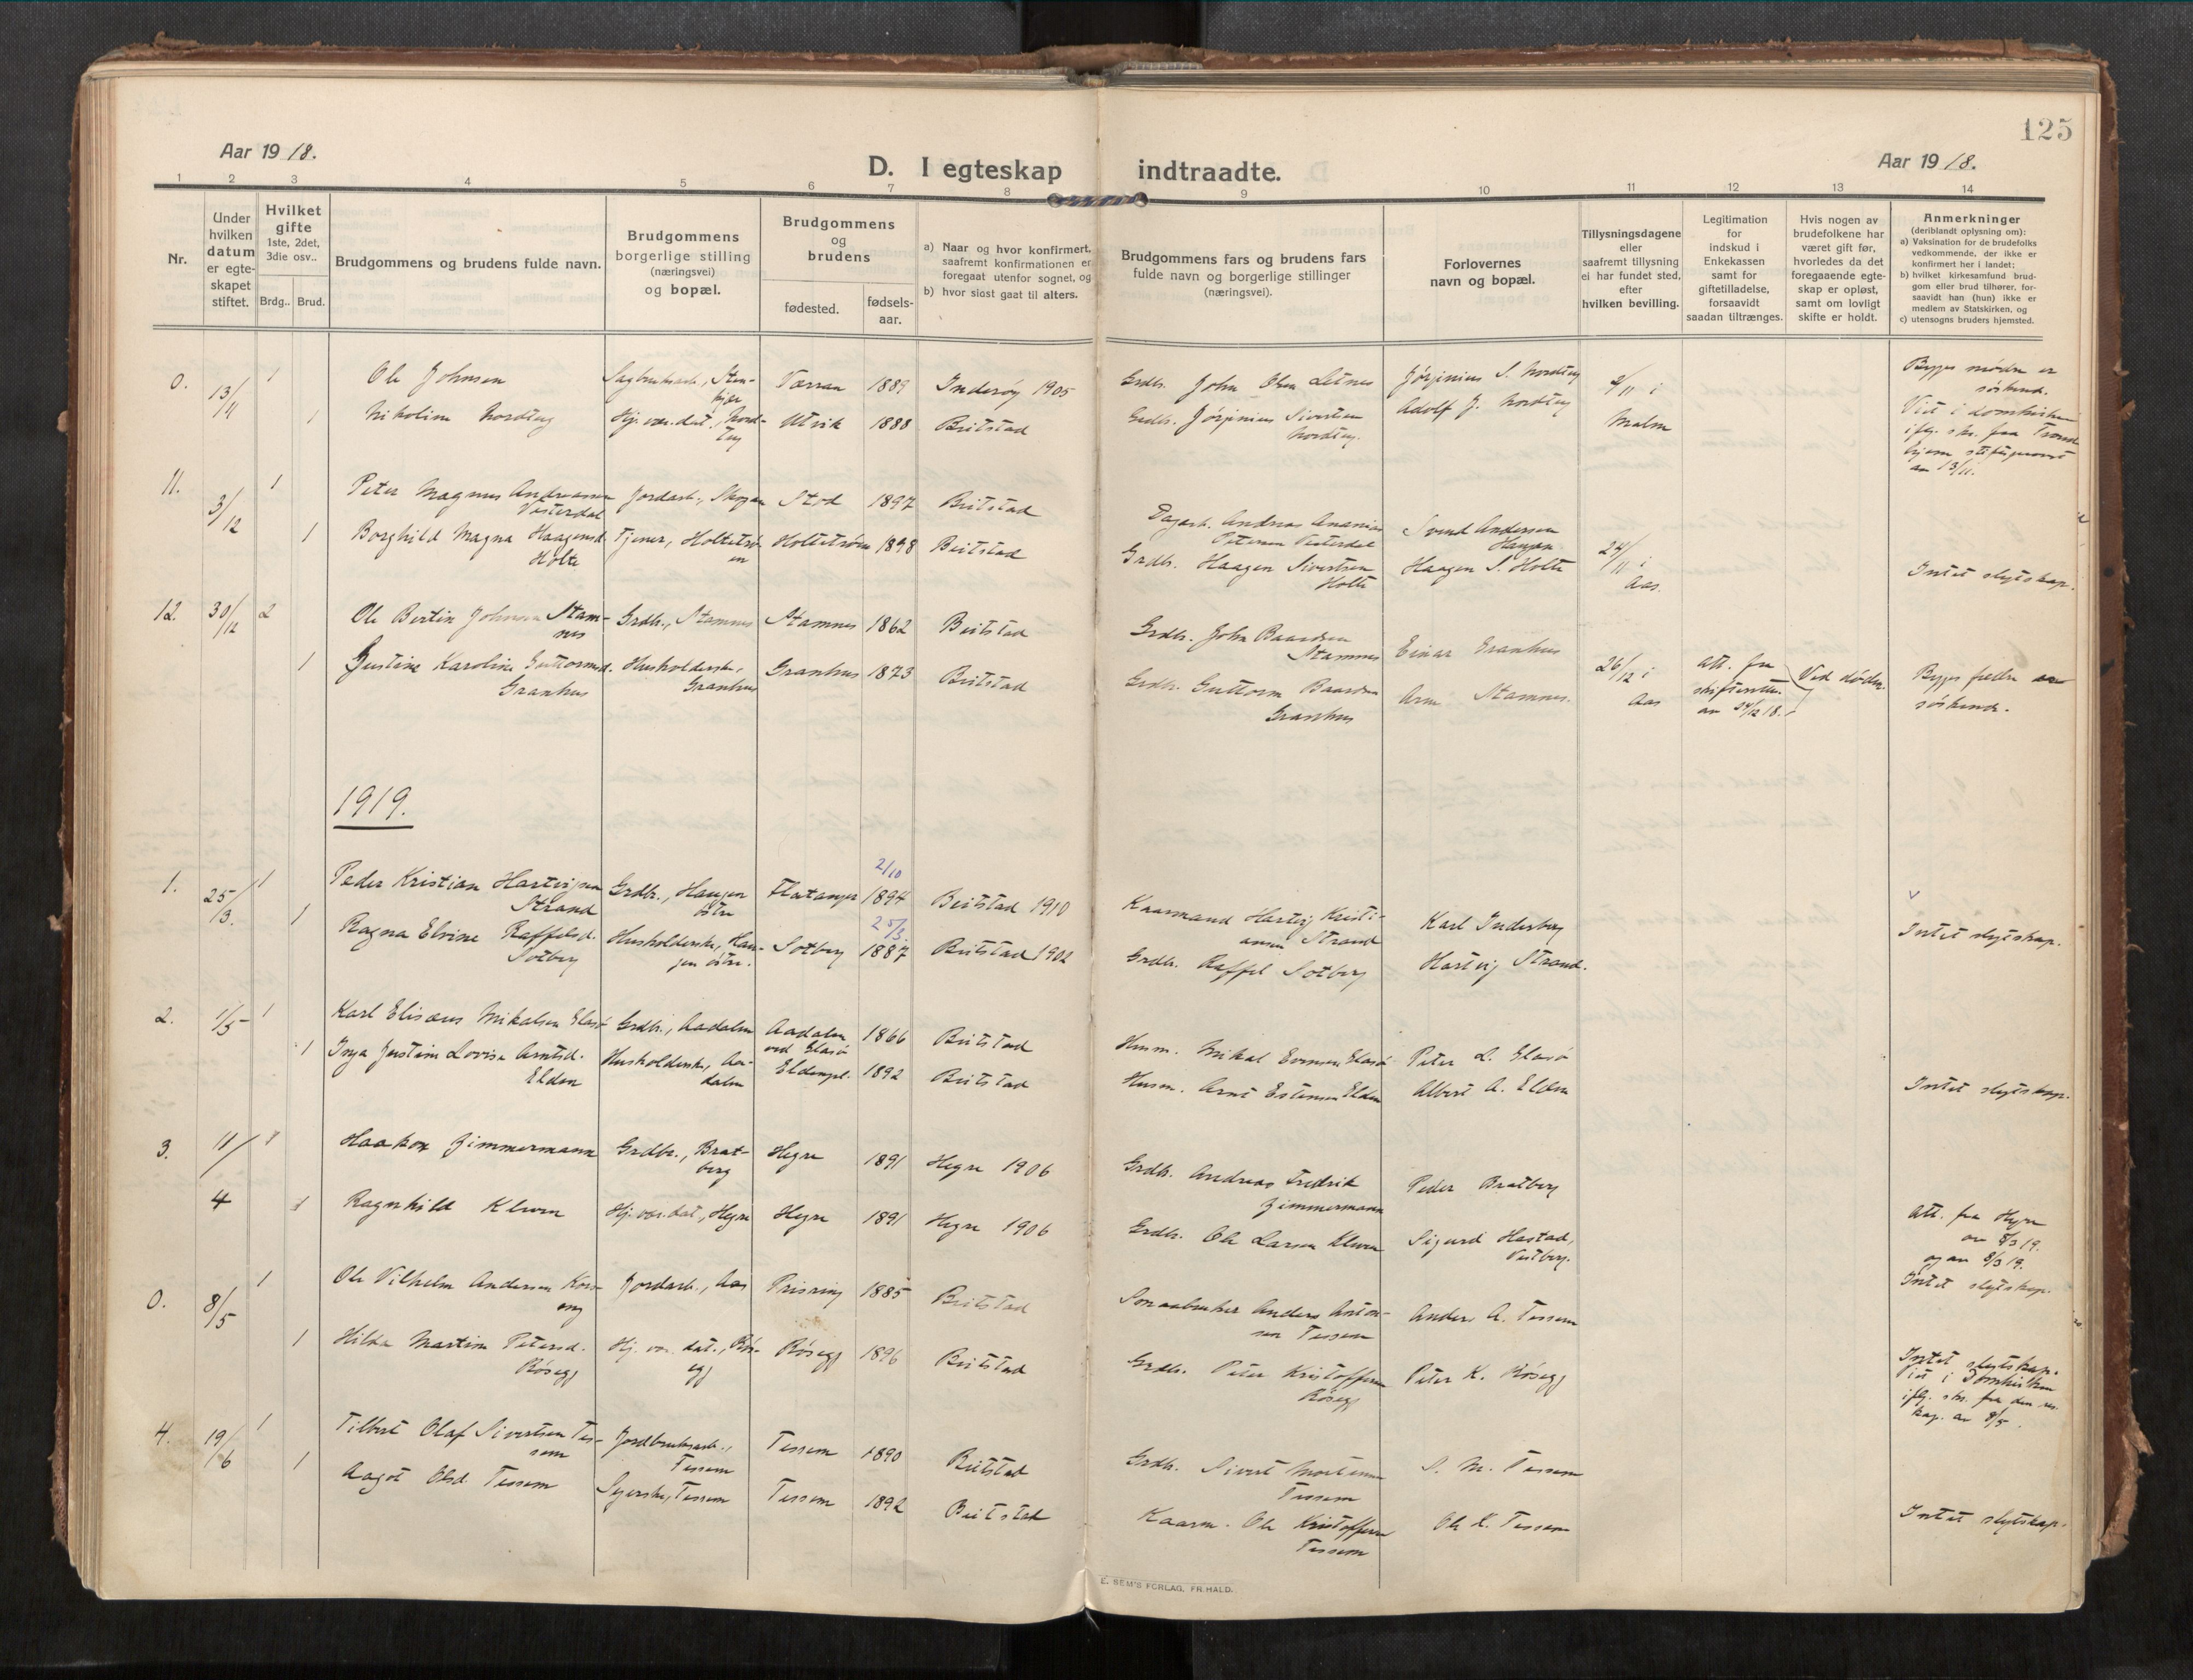 125
Aar 19 18.
D. I egteskap indtraadte.
Aar 19 18.
1 2 3 4 5 6 7 8 9 10 11 12 13 14
Nr.
Under
hvilken
datum
er egte-
skapet
stiftet.
Hvilket
gifte
1ste, 2det,
3die osv..
Brdg.. Brud.
Brudgommens og brudens fulde navn.
Brudgommens
borgerlige stilling
(næringsvei)
og bopæl.
Brudgommens
og
brudens
fødested.
fødsels-
aar.
a) Naar og hvor konfirmert,
saafremt konfirmationen er
foregaat utenfor sognet, og
b) hvor sidst gaat til alters.
Brudgommens fars og brudens fars
fulde navn og borgerlige stillinger
(næringsvei).
Forlovernes
navn og bopæl.
Tillysningsdagene
eller
saafremt tillysning
ei har fundet sted,
efter
hvilken bevilling.
Legitimation
for
indskud i
Enkekassen
samt for
giftetilladelse,
forsaavidt
saadan tiltrænges.
Hvis nogen av
brudefolkene har
været gift før,
hvorledes da det
foregaaende egte-
skap er opløst,
samt om lovligt
skifte er holdt.
Anmerkninger
(deriblandt oplysning om):
a) Vaksination for de brudefolks
vedkommende, der ikke er
konfirmert her i landet;
b) hvilket kirkesamfund brud-
gom eller brud tilhører, for-
saavidt han (hun) ikke er
medlem av Statskirken, og
c) utensogns bruders hjemsted.
0. 13/11 1 Ole Johnsen Sagbruksarb., Sten-
kjer Værran 1889 Inderøy 1905 Grdbr. John Olsen Letnes Jørginius S. Nordtug 2/11 i
Malm
1 Nikoline Nordtug Hj. vær. dat., Nord-
tug Utvik 1888 Beitstad Grdbr. Jørginius Sivertsen
Nordtug. Adolf J. Nordtug
Bgges mødre er
søskend.
Viet i domkirken
iflg. skr. fra Trond-
hjem stiftsprovst
av 13/11.
11. 3/12 1 Peter Magnus Andreassen
Vesterdal Jordarb., Skogan Stod 1897 Beitstad Dagarb. Andreas Ananias
Petersen Vesterdal Svend Andersen
Haugan 24/11 i
Aas.
1 Borghild Magna Haagensd.
Holte Tjener, Holtetrø-
en Holtetrøen 1898 Beitstad Grdbr. Haagen Sivertsen
Holte Haagen S. Holte Intet slegtskap.
12. 30/12 2 Ole Bertin Johnsen Stam-
nes Grdbr., Stamnes Stamnes 1862 Beitstad Grdbr. John Baardsen
Stamnes Einar Granhus 26/12 i
Aas
1 Justine Karoline Guttormsd.
Granhus Husholderske,
Granhus Granhus 1873 Beitstad Grdbr. Guttorm Baardsen
Granhus Arne Stamnes.
Att. fra
skifteretten
av 24/12 18.
Ved døden.
Bgges fædre er
søskende.
1919.
1. 25/3. 1 Peder Kristian Hartvigsen
Strand Grdbr., Haugen
østre Flatanger 2/10 1894 Beitstad 1910 Kaarmand Hartvig Kristi-
ansen Strand Karl Inderberg
1 Ragna Elvine Raffelsd.
Sotberg Husholderske, Hau-
gen østre. Sotberg 25/3. 1887 Beitstad 1902 Grdbr. Raffel Sotberg Hartvig Strand. Intet slegtskap.
2. 1/5 1 Karl Elisæus Mikalsen Elasø Grdbr., Aadalen Aadalen
ved Elasø 1866 Beitstad Husm. Mikal Evensen Elasø Peter L. Elasø
1 Inga Justine Lovise Arntsd.
Elden Husholderske, Aa-
dalen Eldenpl. 1892 Beitstad Husm. Arnt Estensen Elden Albert A. Elden Intet slegtskap.
3. 11/4 1 Haakon Zimmermann Grdbr., Brat-
berg Hegre 1891 Hegre 1906 Grdbr. Andreas Fredrik
Zimmermann Peder Bratberg
1 Ragnhild Kleven Hj. vær. dat., Hegre Hegre 1891 Hegre 1906 Grdbr. Ole Larsen Kleven Sigurd Hastad,
Vestberg.
Att. fra Hegre
av 8/3 19.
og av 8/3 19.
Intet slegtskap.
0. 8/5 1 Ole Vilhelm Andersen Kors-
eng Jordarb., Aas Prisring 1885 Beitstad Smaabruker Anders Anton-
sen Tessem Anders A. Tessem
1 Hilda Martine Petersd.
Røsegg Hj. vær. dat., Røs-
egg Røsegg 1896 Beitstad Grdbr. Peter Kristoffersen
Røsegg Peter K. Røsegg
Intet slegtskap.
Viet i Domkirken
iflg. skr. fra den res.
kap. av 8/5.
4. 19/6 1 Tilbert Olaf Sivertsen Tes-
sem Jordbruksarb.,
Tessem Tessem 1890 Beitstad Grdbr. Sivert Mortensen
Tessem S. M. Tessem
1 Aagot Olsd. Tessem Syerske, Tessem Tessem 1892 Beitstad Kaarm. Ole Kristoffersen
Tessem Ole K. Tessem Intet slegtskap.
E. SEM'S FORLAG, FR.HALD.